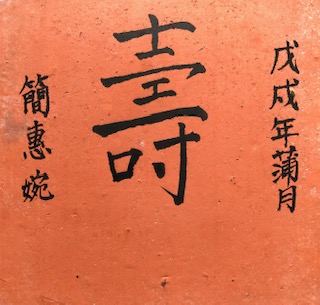 戊戌年蒲月
壽
簡惠婉